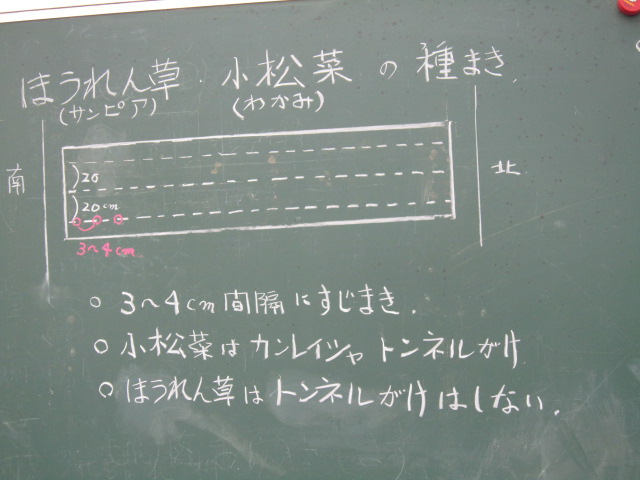 ほうれん草・小松菜の種まき.
(サンピア) (わかみ)
南
北
20
20cm
3〜4cm
○ 3〜4cm間隔にすじまき.
○ 小松菜はカンレイシャトンネルがけ
○ ほうれん草はトンネルがけはしない.